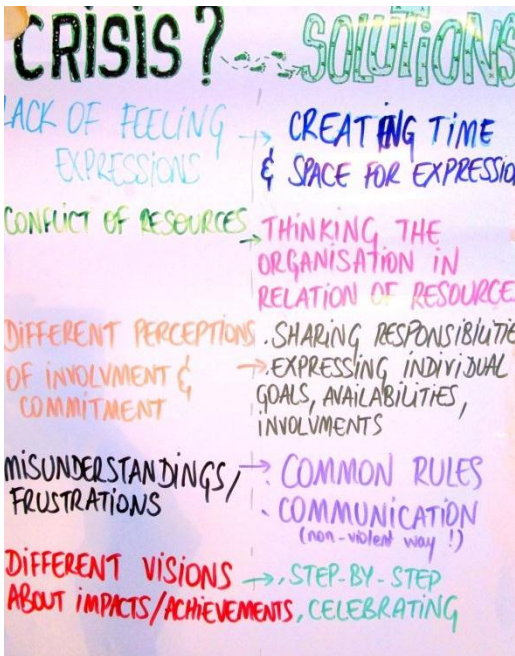 CRISIS? SOLUTIONS
LACK OF FEELING
EXPRESSIONS
CREATING TIME
& SPACE FOR EXPRESSIO
CONFLICT OF RESOURCES
THINKING THE
ORGANISATION IN
RELATION OF RESOURCE
DIFFERENT PERCEPTIONS
OF INVOLVMENT &
COMMITMENT
. SHARING RESPONSIBILITIE
. EXPRESSING INDIVIDUAL
GOALS, AVAILABILITIES,
INVOLVMENTS
MISUNDERSTANDINGS/
FRUSTRATIONS
. COMMON RULES
. COMMUNICATION
(non-violent way!)
DIFFERENT VISIONS
ABOUT IMPACTS/ACHIEVEMENTS
. STEP-BY-STEP
. CELEBRATING